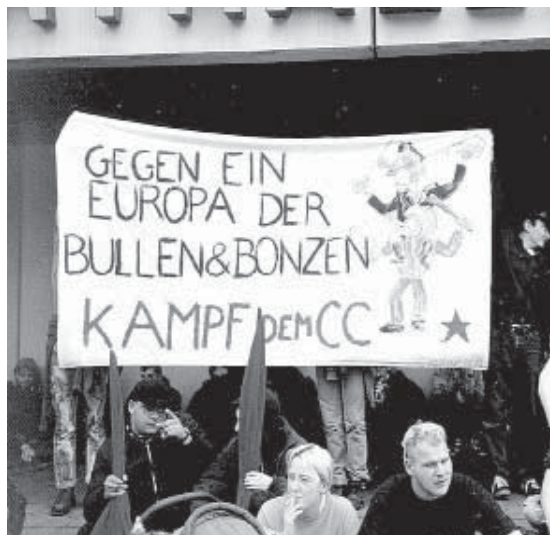 GEGEN EIN
EUROPA DER
BULLEN&BONZEN
KAMPF DEM CC